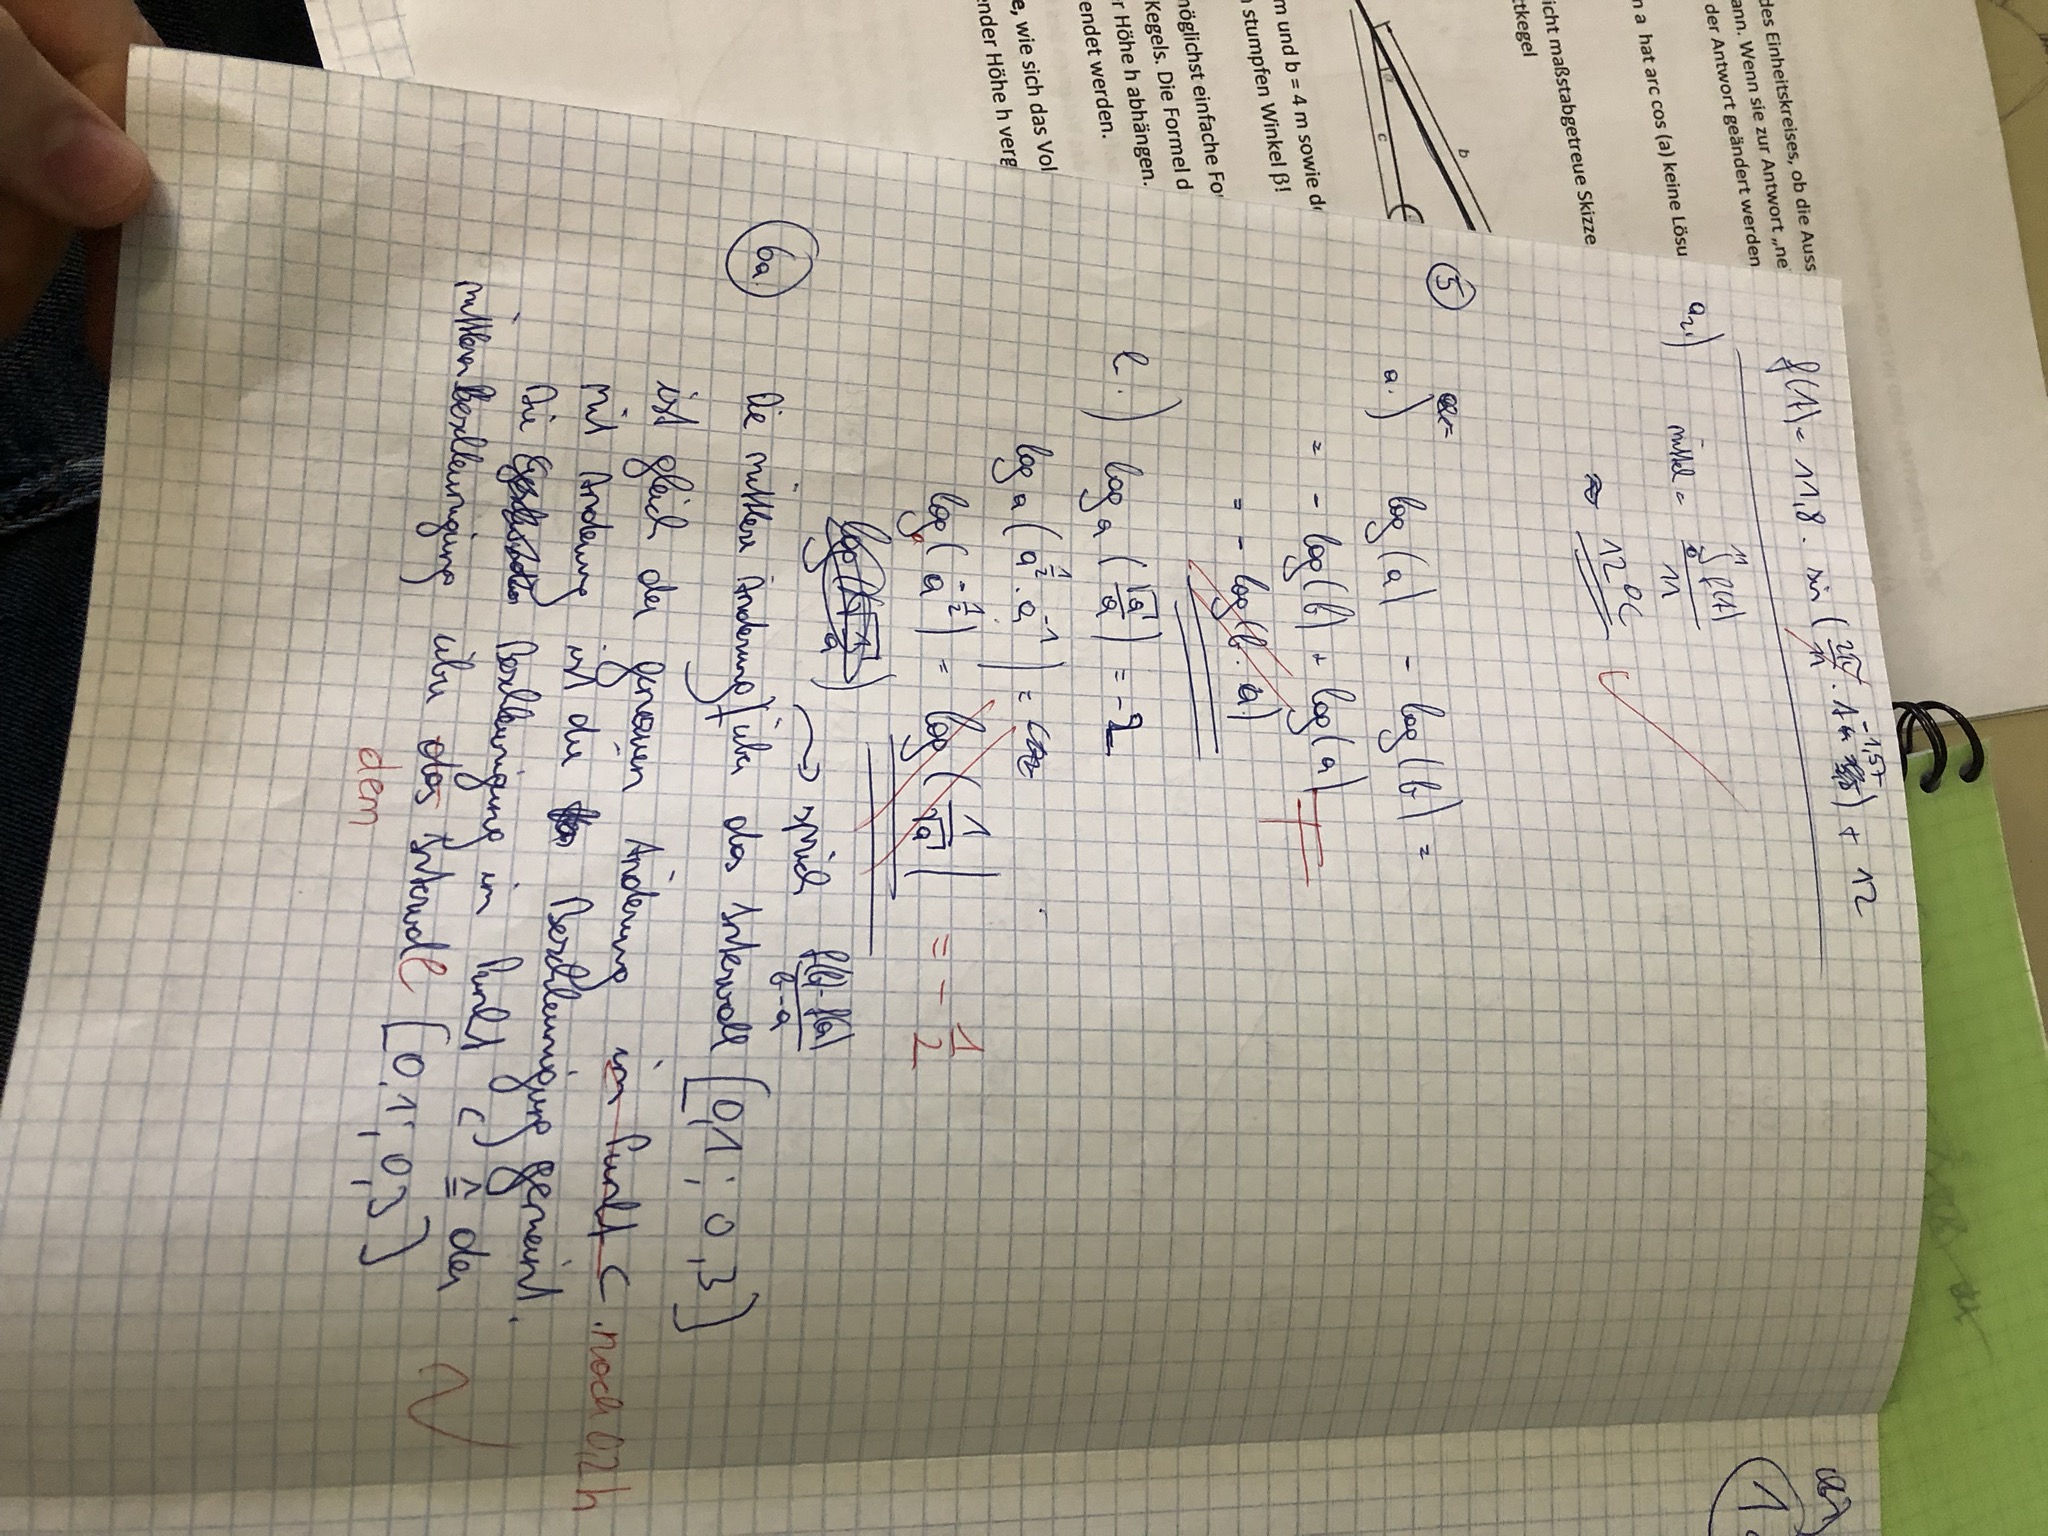 des Einheitskreises, ob die Auss
ann. Wenn sie zur Antwort „ne
der Antwort geändert werden
n a hat arc cos (a) keine Lösu
icht maßstabgetreue Skizze
tkegel
b
c
m und b = 4 m sowie de
n stumpfen Winkel β!
möglichst einfache For
Kegels. Die Formel d
r Höhe h abhängen.
endet werden.
e, wie sich das Vol
ender Höhe h verg
f(t) = 11,8 · sin ( 2π/11 · t - 1,57 ) + 12
a2.) mittel =
≈ 12°C
5
a.) log(a) - log(b) =
= - log(b) + log(a)
= - log(b · a)
b.) log a ( √a / a ) = -2
log a ( a^½ · a^-1 ) =
log ( a^-½ ) = log ( 1/√a ) = - 1/2
sprich f(b)-f(a) / b-a
6a. Die mittlere Änderung über das Intervall [0,1 ; 0,3]
ist gleich der genauen Änderung im Punkt C. nach 0,2 h
mit Änderung ist die Beschleunigung gemeint.
Die Beschleunigung im Punkt C ≙ der
mittleren Beschleunigung über das Intervall [0,1 ; 0,3]
dem
1.